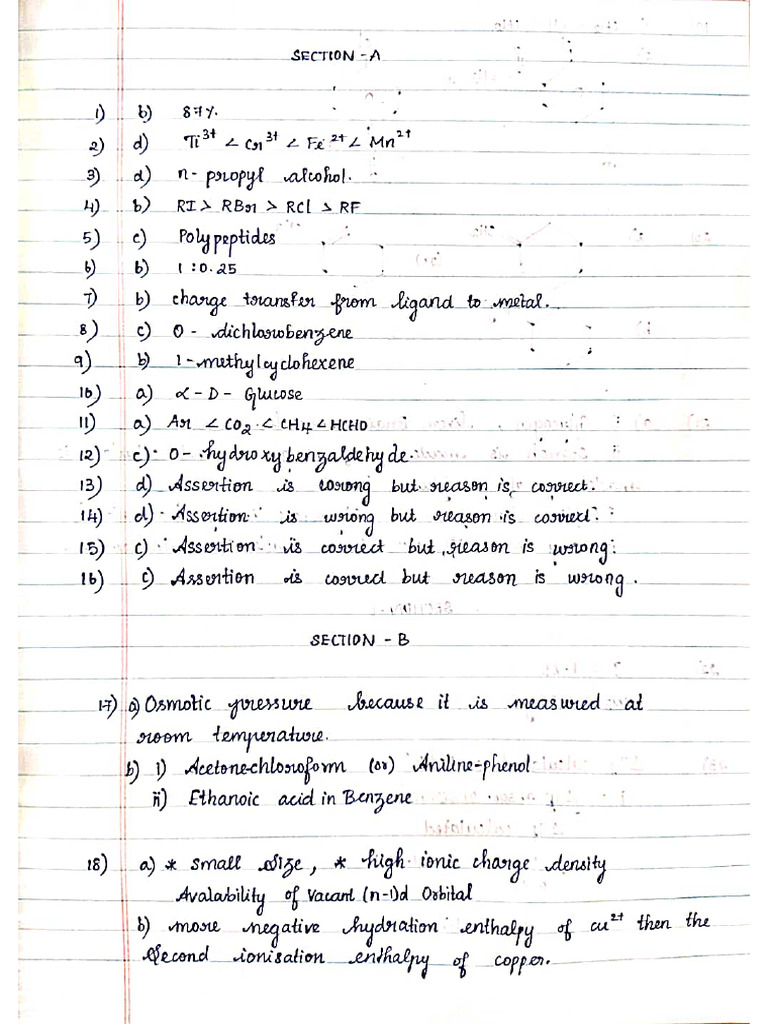 SECTION - A
1) b) 87%.
2) d) Ti³⁺ < Cr³⁺ < Fe²⁺ < Mn²⁺
3) d) n-propyl alcohol.
4) b) RI > RBr > RCl > RF
5) c) Polypeptides
6) b) 1:0.25
7) b) charge transfer from ligand to metal.
8) c) O - dichlorobenzene
9) b) 1-methylcyclohexene
10) a) α-D-Glucose
11) a) Ar < CO₂ < CH₄ < HCHO
12) c) O-hydroxybenzaldehyde.
13) d) Assertion is wrong but reason is correct.
14) d) Assertion is wrong but reason is correct.
15) c) Assertion is correct but reason is wrong.
16) c) Assertion is correct but reason is wrong.
SECTION - B
17) a) Osmotic pressure because it is measured at
room temperature.
b) i) Acetone-chloroform (or) Aniline-phenol
ii) Ethanoic acid in Benzene
18) a) * small size, * high ionic charge density
Avalability of Vacant (n-1)d Orbital
b) more negative hydration enthalpy of cu²⁺ then the
Second ionisation enthalpy of copper.